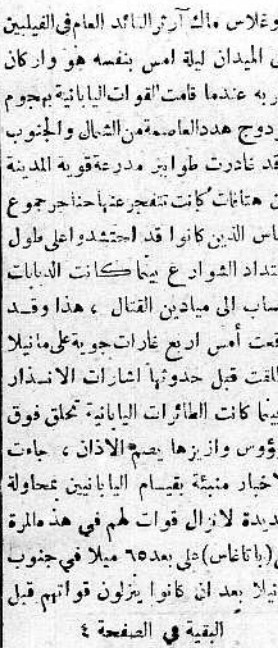 وغلاس ماك آرثر القائد العام في الفيلبين
الميدان ليلة امس بنفسه هو واركان
ربه عندما قامت القوات اليابانية بهجوم
دوج هدد العاصمة من الشمال والجنوب
قد غادرت طوابير مدرعة قوية المدينة
هتافات كانت تتفجر عنها حناجر جموع
ناس الذين كانوا قد احتشدوا على طول
تداد الشوارع بينما كانت الدبابات
نساب الى ميادين القتال ، هذا وقد
قعت أمس اربع غارات جوية على مانيلا
طلقت قبل حدوثها اشارات الانذار
بينما كانت الطائرات اليابانية تحلق فوق
رؤوس وازيزها يصم الاذان ، جاءت
لاخبار منبئة بقيام اليابانيين بمحاولة
ديدة لانزال قوات لهم في هذه المرة
(باتاغاس) على بعد ٦٥ ميلا في جنوب
نيلا بعد ان كانوا ينزلون قواتهم قبل
البقية في الصفحة ٤